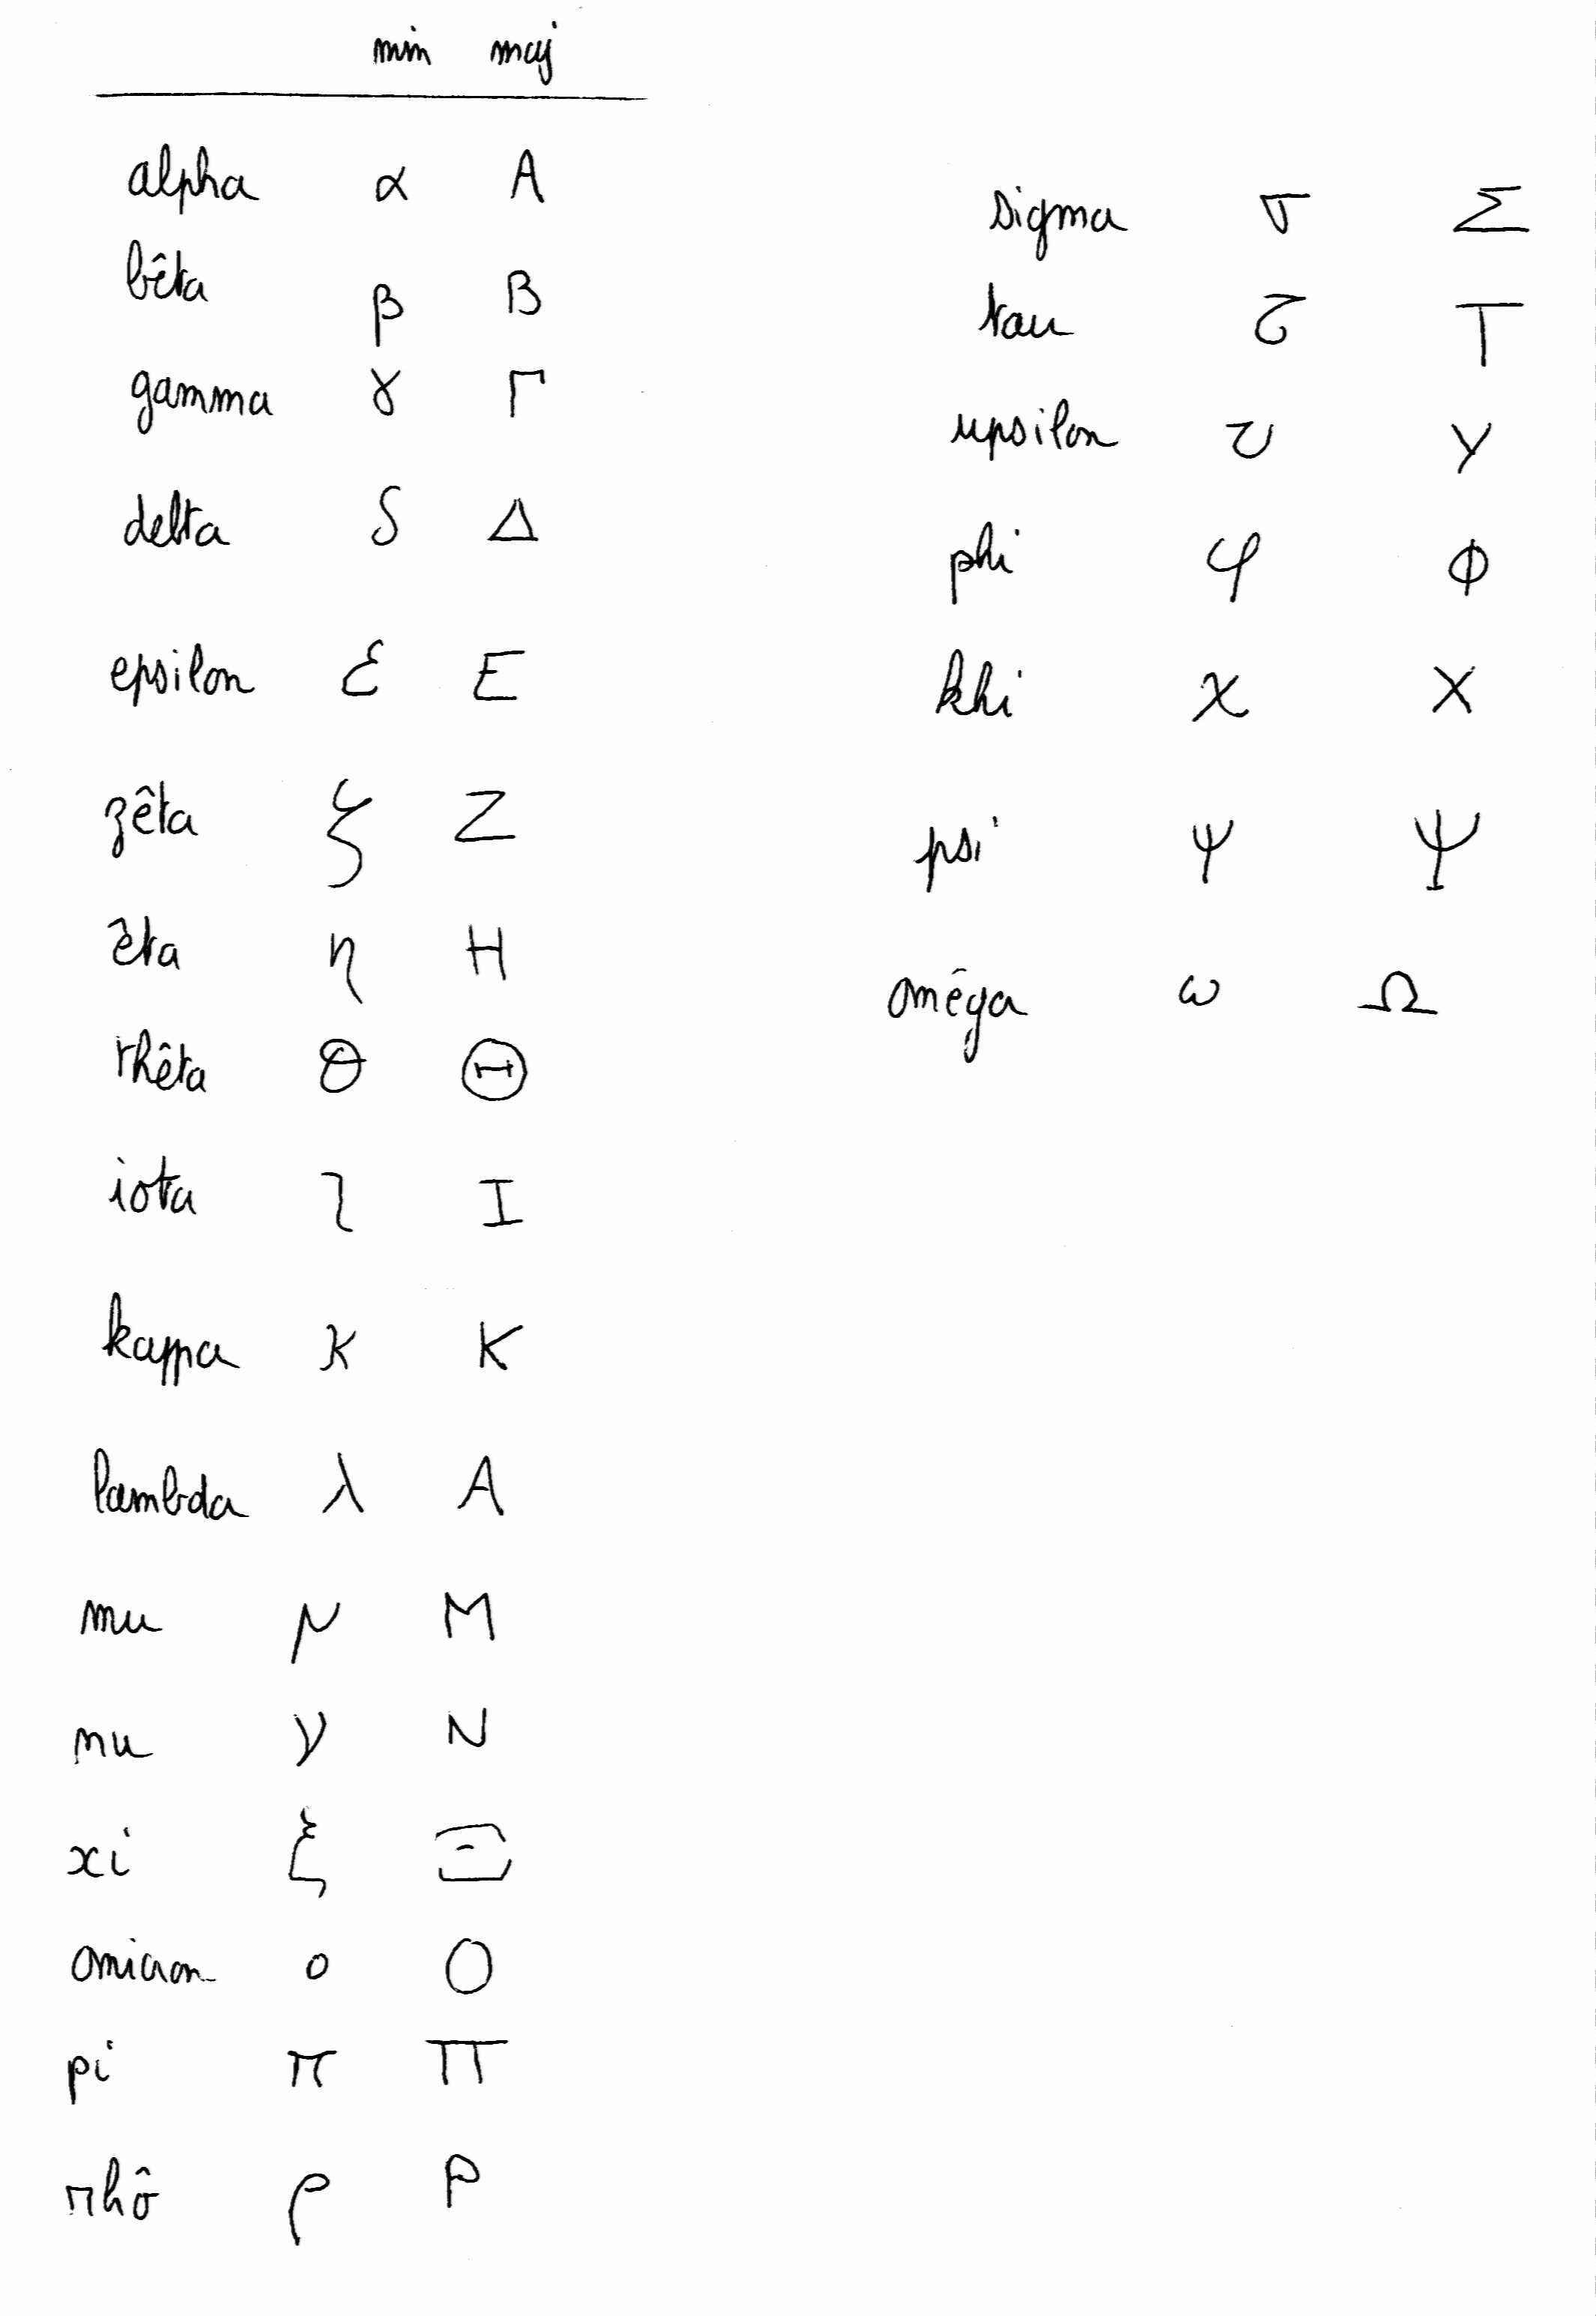 min maj
alpha α A
bêta β B
gamma γ Γ
delta δ Δ
epsilon ε E
zêta ζ Z
êta η H
thêta θ Θ
iota ι I
kappa κ K
lambda λ A
mu μ M
nu ν N
xi ξ Ξ
omicron ο O
pi π Π
rhô ρ P
sigma σ Σ
tau τ T
upsilon υ Y
phi φ Φ
khi χ X
psi ψ Ψ
oméga ω Ω